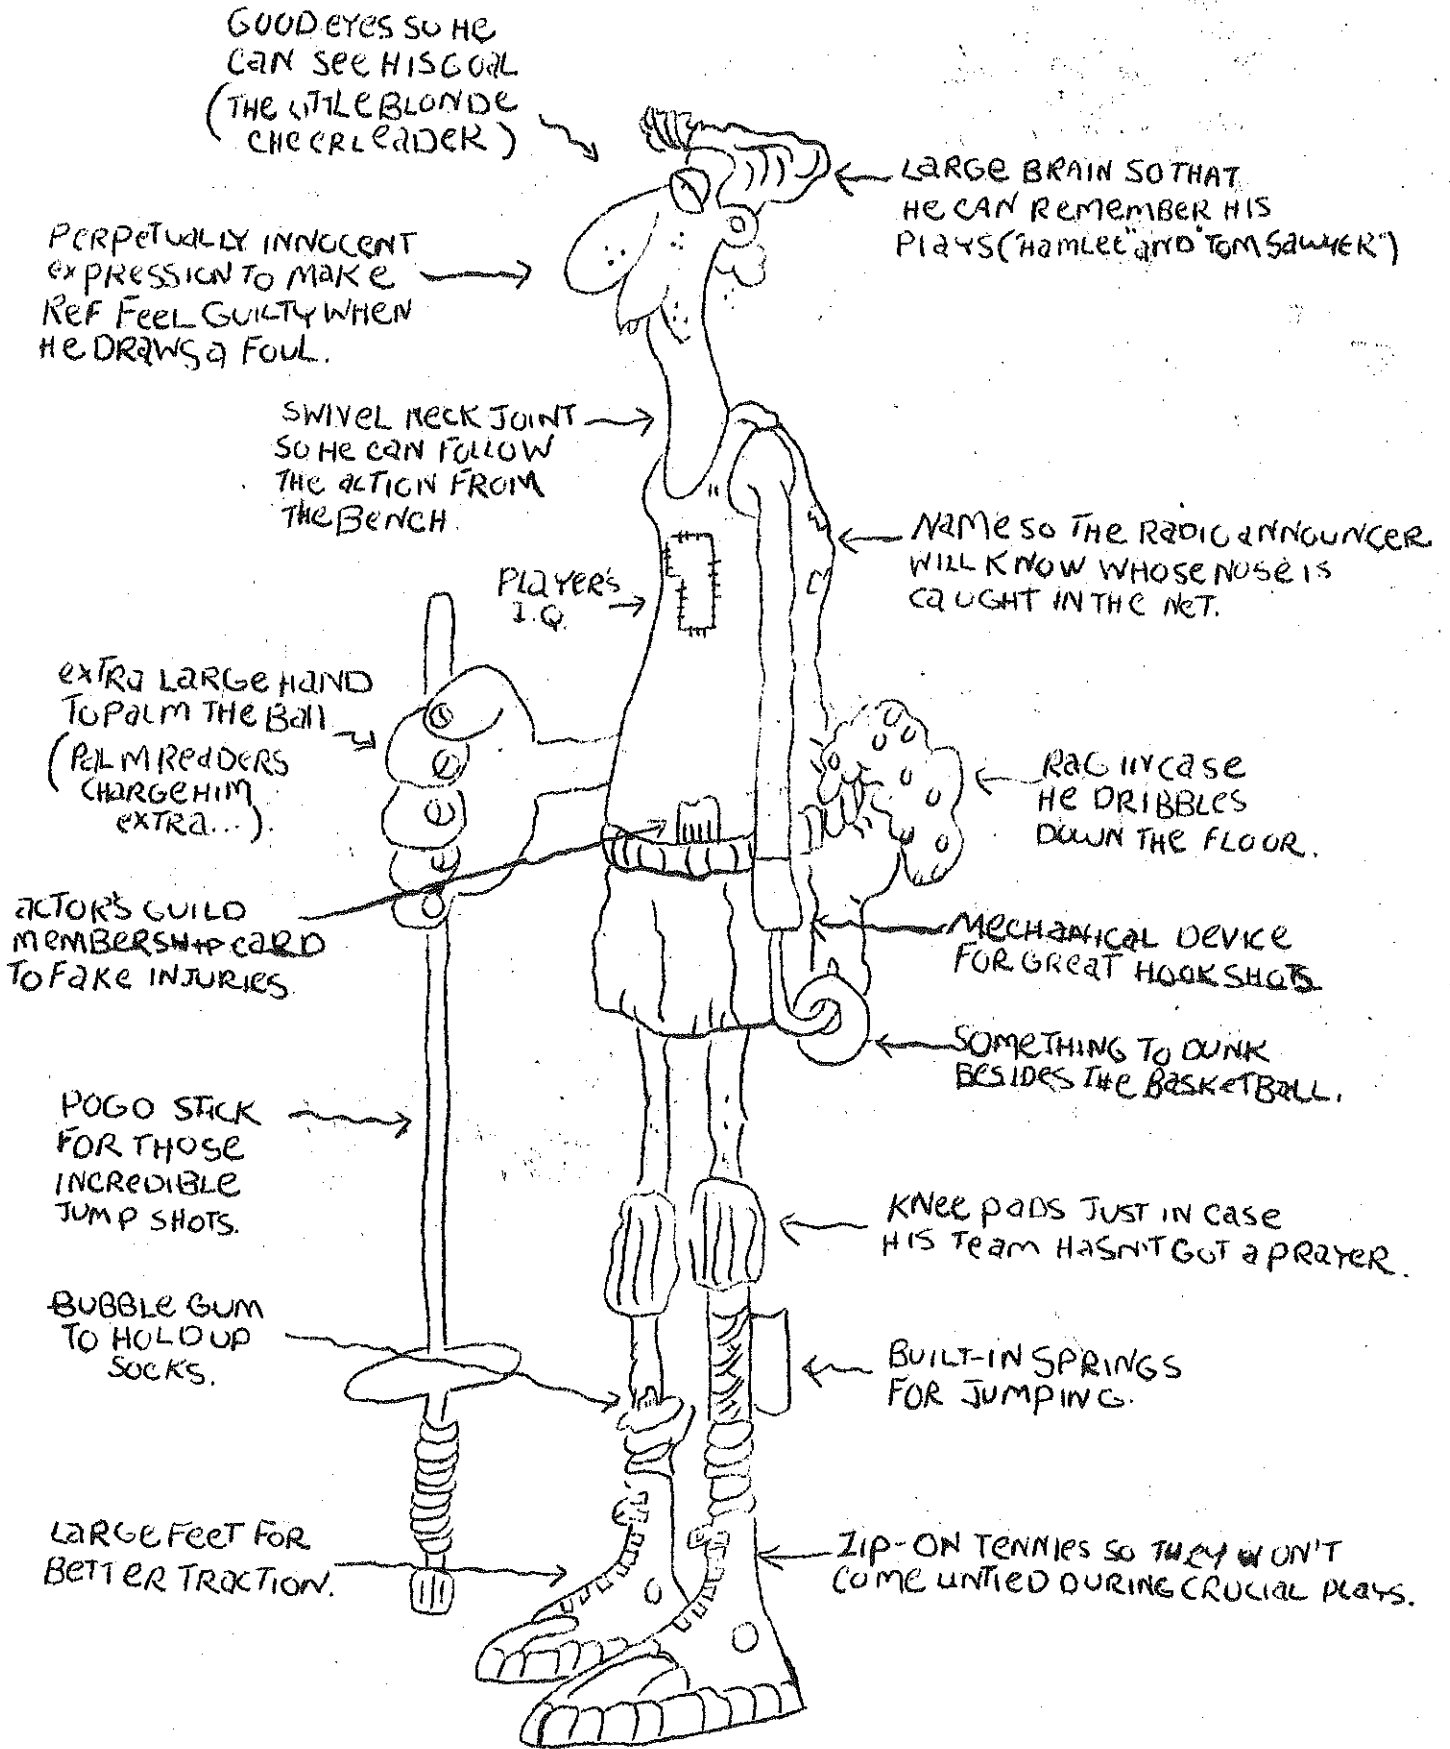 GOOD EYES SO HE
CAN SEE HIS GOAL
(THE LITTLE BLONDE
CHEERLEADER)
LARGE BRAIN SO THAT
HE CAN REMEMBER HIS
PLAYS ("HAMLET" AND "TOM SAWYER")
PERPETUALLY INNOCENT
EXPRESSION TO MAKE
REF FEEL GUILTY WHEN
HE DRAWS A FOUL.
SWIVEL NECK JOINT
SO HE CAN FOLLOW
THE ACTION FROM
THE BENCH.
NAME SO THE RADIO ANNOUNCER
WILL KNOW WHOSE NOSE IS
CAUGHT IN THE NET.
PLAYER'S
I.Q.
EXTRA LARGE HAND
TO PALM THE BALL
(PALM READERS
CHARGE HIM
EXTRA...).
RAG IN CASE
HE DRIBBLES
DOWN THE FLOOR.
ACTOR'S GUILD
MEMBERSHIP CARD
TO FAKE INJURIES.
MECHANICAL DEVICE
FOR GREAT HOOK SHOTS
SOMETHING TO DUNK
BESIDES THE BASKETBALL.
POGO STICK
FOR THOSE
INCREDIBLE
JUMP SHOTS.
KNEE PADS JUST IN CASE
HIS TEAM HASN'T GOT A PRAYER.
BUBBLE GUM
TO HOLD UP
SOCKS.
BUILT-IN SPRINGS
FOR JUMPING.
LARGE FEET FOR
BETTER TRACTION.
ZIP-ON TENNIES SO THEY WON'T
COME UNTIED DURING CRUCIAL PLAYS.